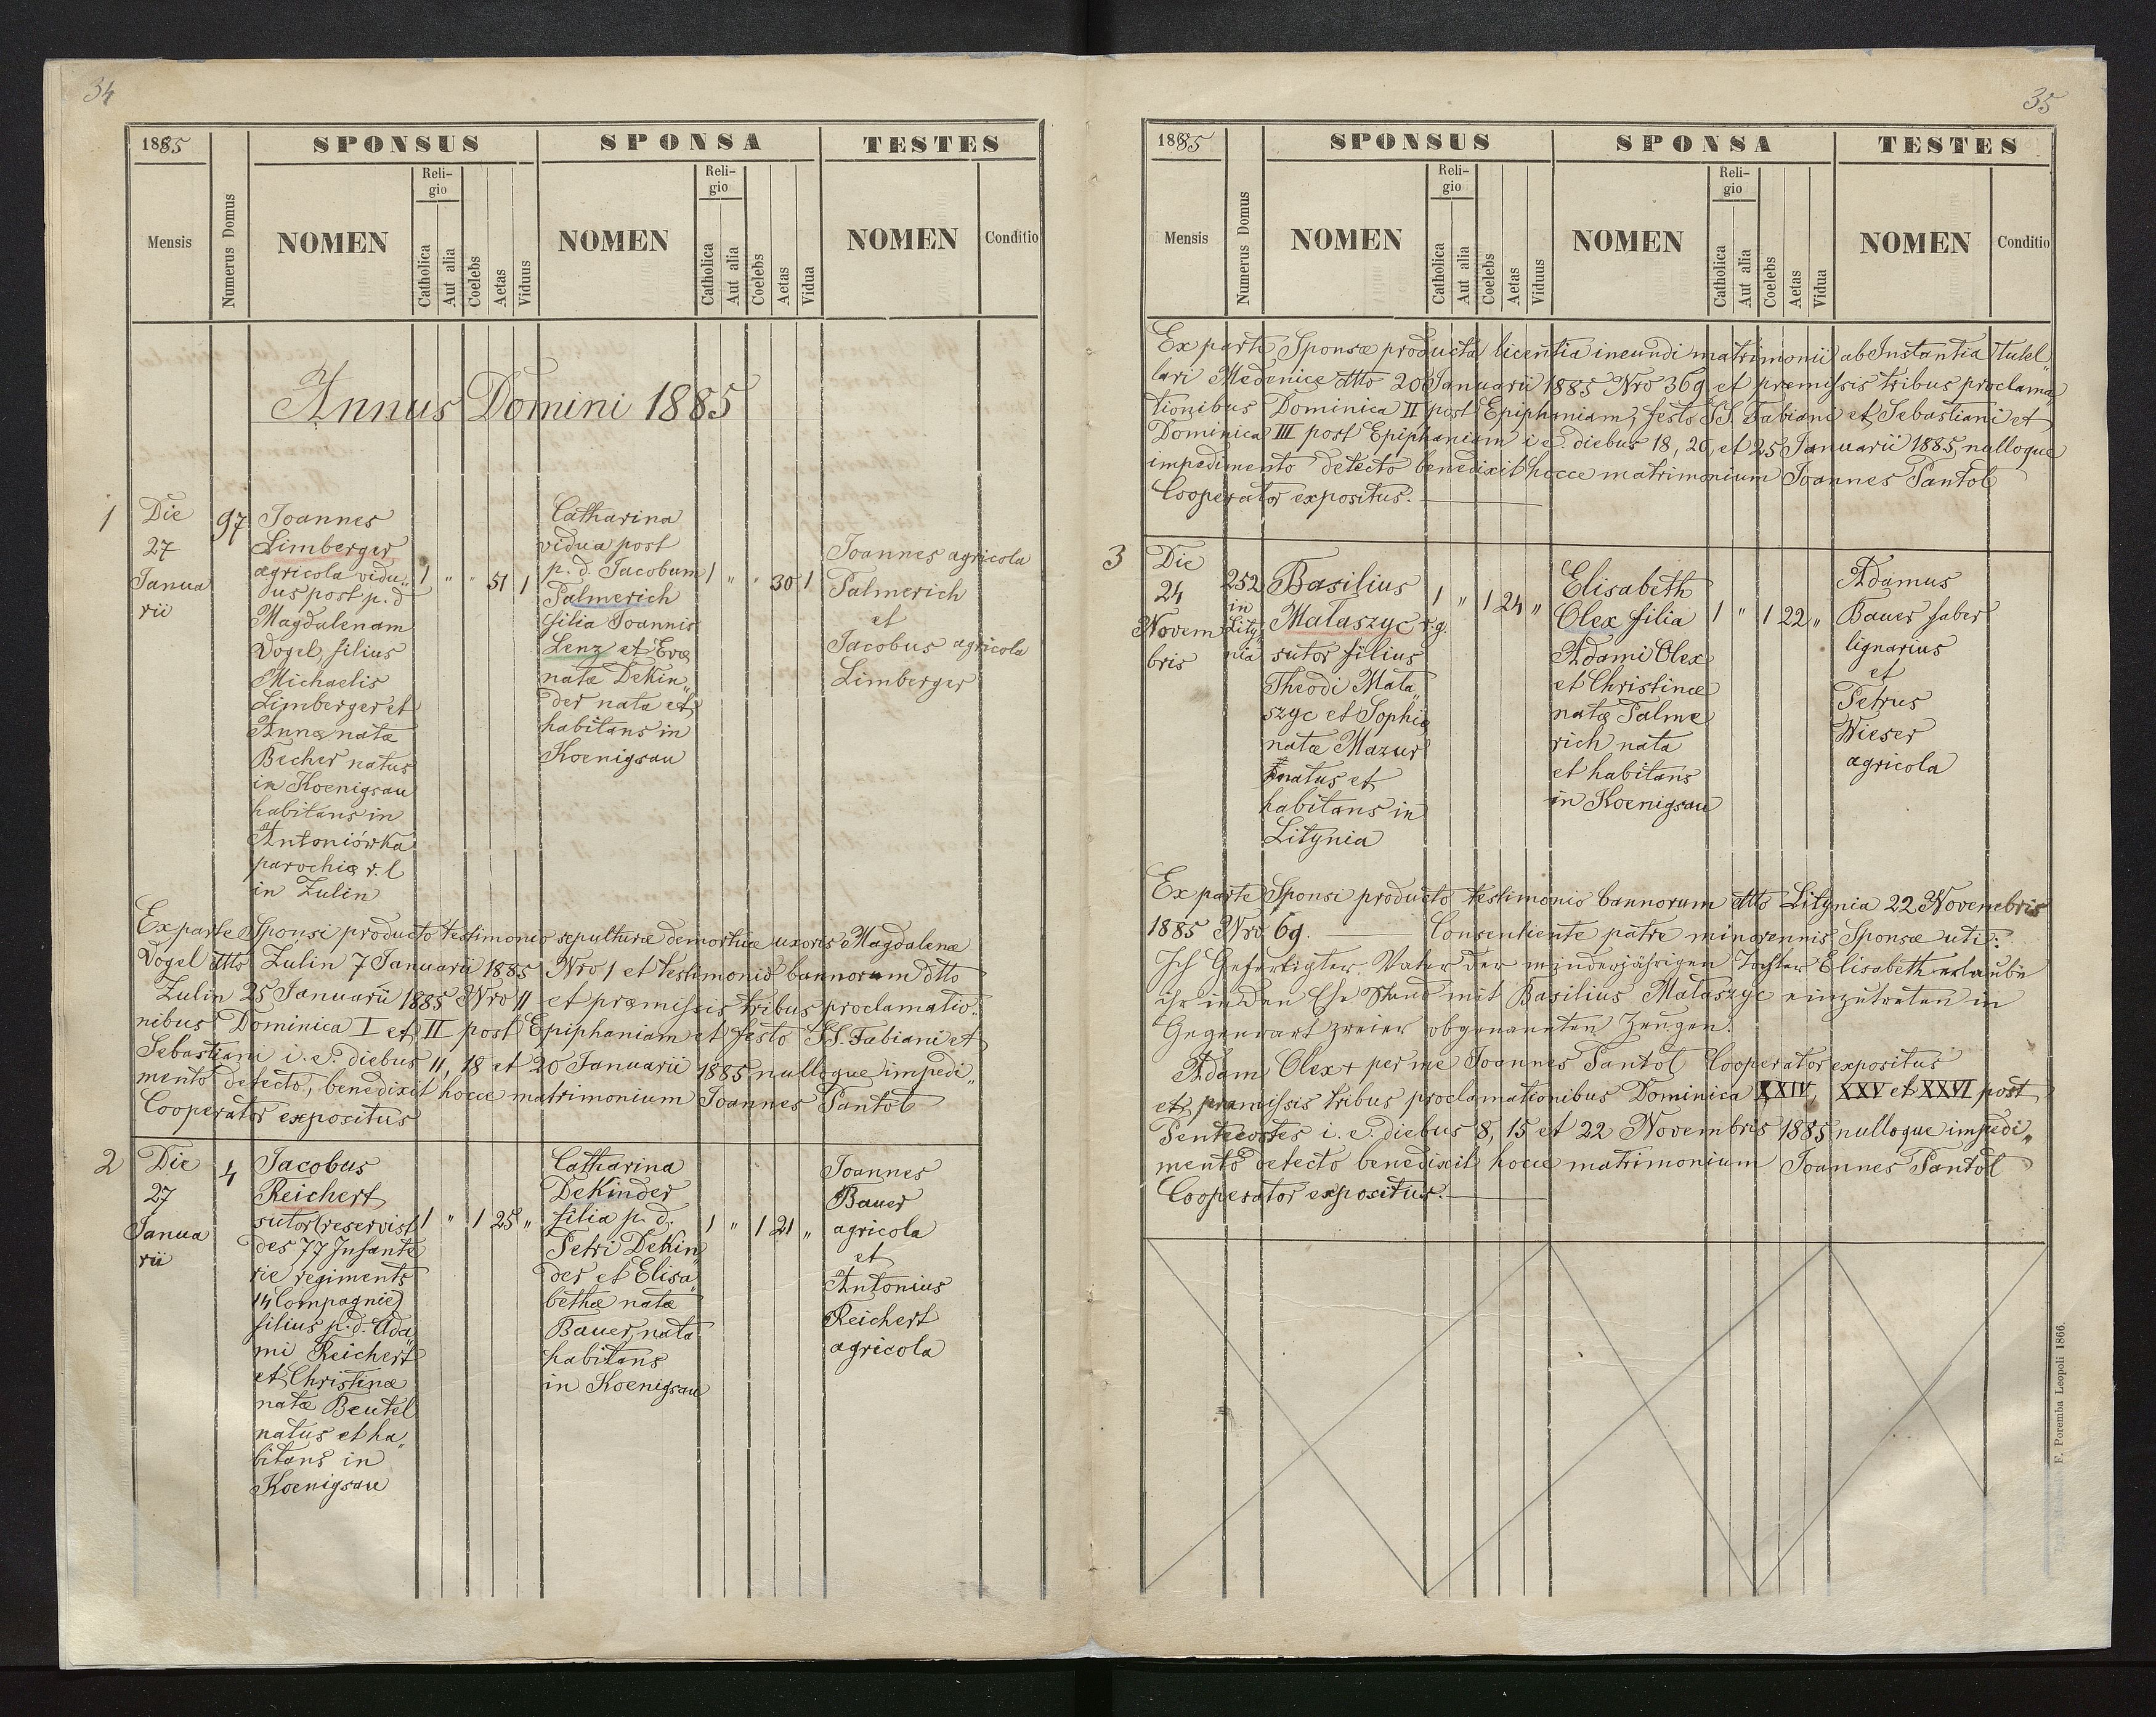 34
1885
SPONSUS
SPONSA
TESTES
Mensis
Numerus Domus
NOMEN
Reli-
gio
Catholica
Aut alia
Coelebs
Aetas
Viduus
NOMEN
Reli-
gio
Catholica
Aut alia
Coelebs
Aetas
Vidua
NOMEN
Conditio
Annus Domini 1885
1
Die
27
Janua
rii
97
Joannes
Limberger
agricola vidu„
us post p. d
Magdalenam
Vogel, filius
Michaelis
Limberger et
Annæ natæ
Becher natus
in Koenigsau
habitans in
Antoniówka
parochiæ r. l
in Zulin
1 " " 51 1
Catharina
vidua post
p. d. Jacobum
Palmerich
filia Joannis
Lenz et Evæ
natæ DeKin„
der nata et
habitans in
Koenigsau
1 " " 30 1
Joannes agricola
Palmerich
et
Jacobus agricola
Limberger
Ex parte Sponsi producto testimonio sepulturæ demortuæ uxoris Magdalenæ
Vogel dtto Zulin 7 Januarii 1885 Nro 1 et testimonio bannorum dtto
Zulin 25 Januarii 1885 Nro 11 et præmissis tribus proclamatio„
nibus Dominica I et II post Epiphaniam et festo S.S. Fabiani et
Sebastiani i. e. diebus 11, 18 et 20 Januarii 1885 nulloque impedi„
mento detecto, benedixit hocce matrimonium Joannes Pantoł
Cooperator expositus
2
Die
27
Janua
rii
4
Jacobus
Reichert
sutor (reservist
des 77 Infante
rie regiments
14 Compagnie)
filius p. d. Ada„
mi Reichert
et Christinæ
natæ Beutel
natus et ha„
bitans in
Koenigsau
1 " 1 25 "
Catharina
DeKinder
filia p. d.
Petri DeKin„
der et Elisa„
bethæ natæ
Bauer, nata
habitans
in Koenigsau
1 " 1 21 "
Joannes
Bauer
agricola
et
Antonius
Reichert
agricola
35
1885
SPONSUS
SPONSA
TESTES
Mensis
Numerus Domus
NOMEN
Reli-
gio
Catholica
Aut alia
Coelebs
Aetas
Viduus
NOMEN
Reli-
gio
Catholica
Aut alia
Coelebs
Aetas
Vidua
NOMEN
Conditio
Ex parte Sponsæ producta licentia ineundi matrimonii ab Instantia tutel„
lari Medenice dtto 20 Januarii 1885 Nro 369 et premissis tribus proclama„
tionibus Dominica II post Epiphaniam, festo S.S. Fabiani et Sebastiani et
Dominica III post Epiphaniam i e. diebus 18, 20, et 25 Januarii 1885, nulloque
impedimento detecto benedixit hocce matrimonium Joannes Pantoł
Cooperator expositus.
3
Die
24
Novem
bris
252
in
Lity„
nia
Basilius
Małaszyc
sutor filius
Theodi Mała„
szyc et Sophiæ
natæ Mazur
natus et
habitans in
Litynia
1 r.g. " 1 24 "
Elisabeth
Olex filia
Adami Olex
et Christinæ
natæ Palme
rich nata
et habitans
in Koenigsau
1 " 1 22 "
Adamus
Bauer faber
lignarius
et
Petrus
Wieser
agricola
Ex parte Sponsi producto testimonio bannorum dtto Litynia 22 Novembris
1885 Nro 69. Consentiente patre minorennis Sponsæ uti:
Ich Gefertigter Vater der minderjährigen Tochter Elisabeth erlaube
ihr in den Ehe Stand mit Basilius Małaszyc einzutreten in
Gegenwart zweier obgenannten Zeugen.
Adam Olex + per me Joannes Pantoł Cooperator expositus
et præmissis tribus proclamationibus Dominica XXIV, XXV et XXVI post
Pentecostes i. e. diebus 8, 15 et 22 Novembris 1885 nulloque impedi„
mento detecto benedixit hocce matrimonium Joannes Pantoł
Cooperator expositus.
F. Poremba Leopoli 1866.